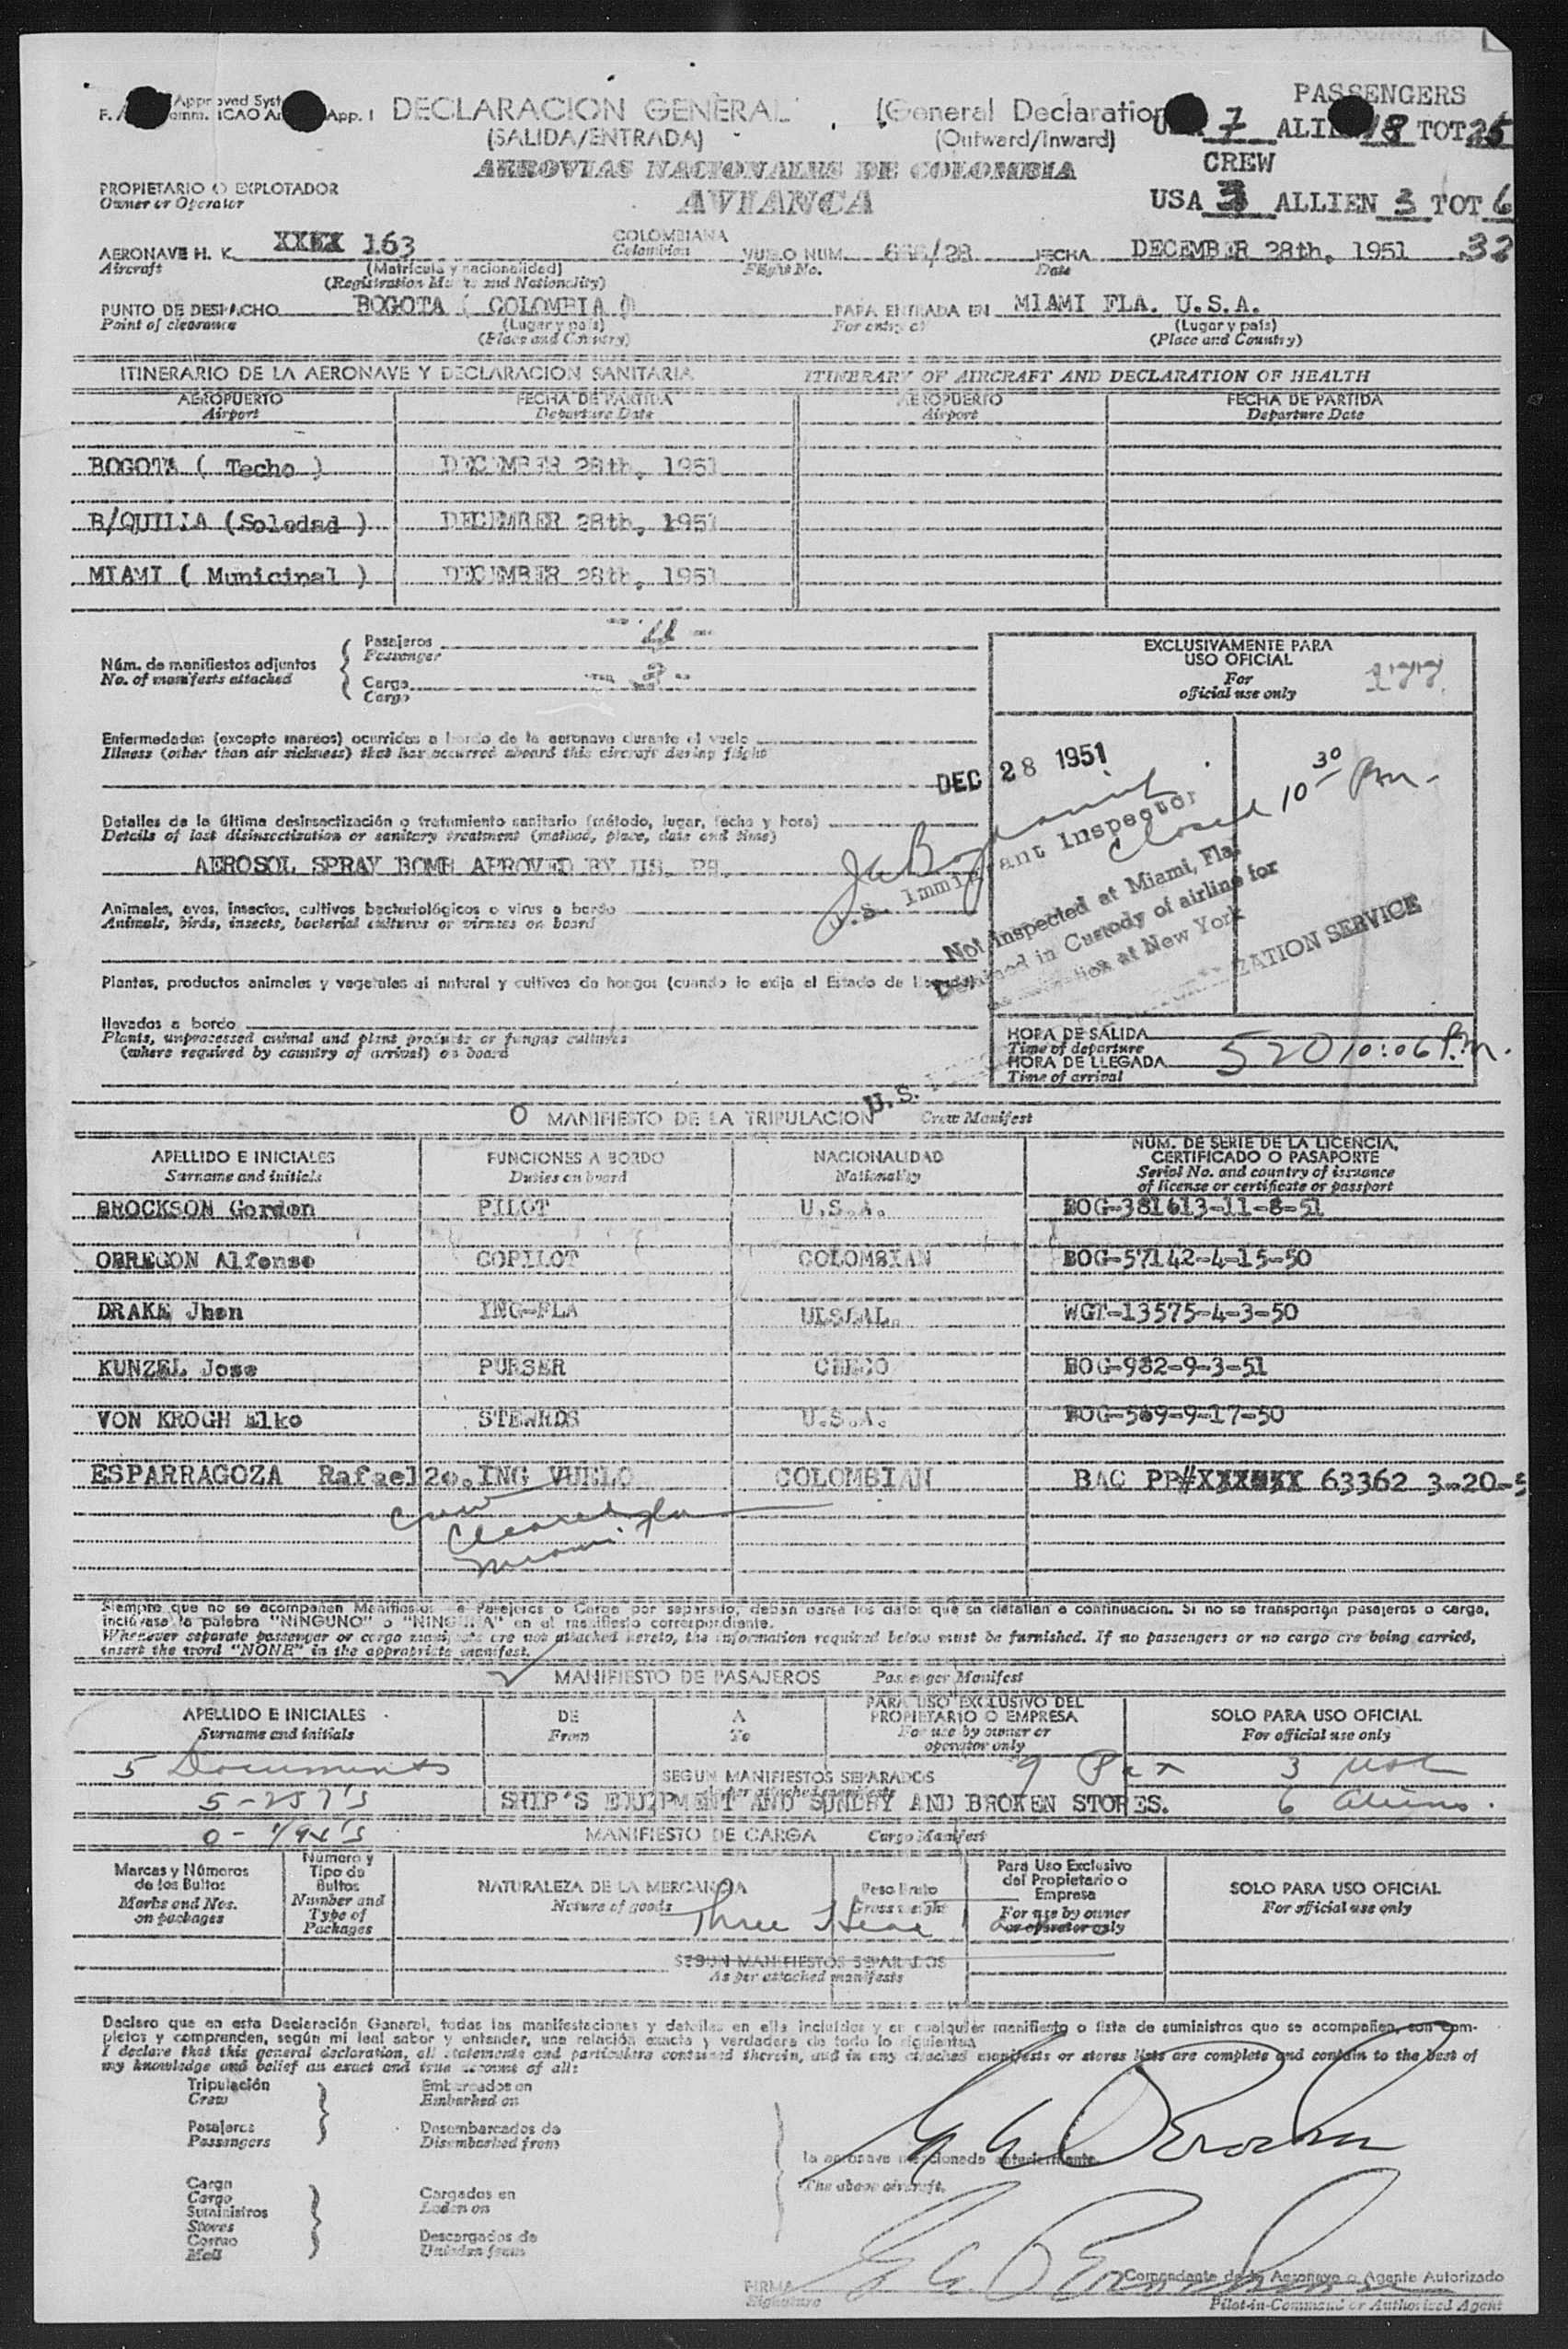 PASSENGERS
F. Approved Syst App. I DECLARACION GENERAL (General Declaration 7 ALI 18 TOT 25
ICAO (SALIDA/ENTRADA) (Outward/Inward) CREW
AEROVIAS NACIONALES DE COLOMBIA
PROPIETARIO O EXPLOTADOR AVIANCA USA 3 ALLIEN 3 TOT 6
Owner or Operator
AERONAVE H. K. 163 COLOMBIANA VUELO NUM. /28 FECHA DECEMBER 28th, 1951 32
Aircraft (Matrícula y nacionalidad) Colombian Flight No. Date
(Registration Marks and Nationality)
PUNTO DE DESPACHO BOGOTA ( COLOMBIA ) PARA ENTRADA EN MIAMI FLA. U.S.A.
Point of clearance (Lugar y país) For entry at (Lugar y país)
(Place and Country) (Place and Country)
ITINERARIO DE LA AERONAVE Y DECLARACION SANITARIA ITINERARY OF AIRCRAFT AND DECLARATION OF HEALTH
AEROPUERTO FECHA DE PARTIDA AEROPUERTO FECHA DE PARTIDA
Airport Departure Date Airport Departure Date
BOGOTA ( Techo ) DECEMBER 28th, 1951
B/QUILLA (Soledad ) DECEMBER 28th, 1951
MIAMI ( Municipal ) DECEMBER 28th, 1951
Núm. de manifiestos adjuntos
No. of manifests attached
Pasajeros
Passenger
Carga
Cargo
EXCLUSIVAMENTE PARA
USO OFICIAL
For
official use only
177
Enfermedades (excepto mareos) ocurridas a bordo de la aeronave durante el vuelo
Illness (other than air sickness) that has occurred aboard this aircraft during flight
DEC 28 1951
Closed 10 30 Pm.
U.S. Immigrant Inspector
Detalles de la última desinsectización o tratamiento sanitario (método, lugar, fecha y hora)
Details of last disinsectization or sanitary treatment (method, place, date and time)
AEROSOL SPRAY BOMB APROVED BY US. PS.
Not inspected at Miami, Fla.
in Custody of airline for
at New York
ZATION SERVICE
U.S.
Animales, aves, insectos, cultivos bacteriológicos o virus a bordo
Animals, birds, insects, bacterial cultures or viruses on board
Plantas, productos animales y vegetales al natural y cultivos de hongos (cuando lo exija el Estado de llegada)
llevados a bordo
Plants, unprocessed animal and plant products or fungus cultures
(where required by country of arrival) on board
HORA DE SALIDA
Time of departure
HORA DE LLEGADA 520 10:06 P.m.
Time of arrival
MANIFIESTO DE LA TRIPULACION Crew Manifest
APELLIDO E INICIALES FUNCIONES A BORDO NACIONALIDAD NUM. DE SERIE DE LA LICENCIA, CERTIFICADO O PASAPORTE
Surname and initials Duties on board Nationality Serial No. and country of issuance of license or certificate or passport
BROCKSON Gordon PILOT U.S.A. BOG-381613-11-8-51
OBREGON Alfonso COPILOT COLOMBIAN BOG-57142-4-15-50
DRAKE Jhon ING-FLA WGT-13575-4-3-50
KUNZEL Jose PURSER CHECO BOG-982-9-3-51
VON KROGH Elko STEWRDS U.S.A. BOG-569-9-17-50
ESPARRAGOZA Rafael 2o.ING VUELO COLOMBIAN BAQ PP# 63362 3-20-5
Crew
Cleared
Miami Fla
Siempre que no se acompañen Manifiestos de Pasajeros o Carga por separado, deban darse los datos que se detallan a continuación. Si no se transportan pasajeros o carga,
inclúyase la palabra "NINGUNO" o "NINGUNA" en el manifiesto correspondiente.
Whenever separate passenger or cargo manifests are not attached hereto, the information required below must be furnished. If no passengers or no cargo are being carried,
insert the word "NONE" in the appropriate manifest.
MANIFIESTO DE PASAJEROS Passenger Manifest
APELLIDO E INICIALES DE A PARA USO EXCLUSIVO DEL PROPIETARIO O EMPRESA SOLO PARA USO OFICIAL
Surname and initials From To For use by owner or operator only For official use only
5 Documents SEGUN MANIFIESTOS SEPARADOS 9 Pax 3 USA
5-257's SHIP'S EQUIPMENT AND SUNDRY AND BROKEN STORES. 6 Aliens.
MANIFIESTO DE CARGA Cargo Manifest
Marcas y Números de los Bultos Número y Tipo de Bultos NATURALEZA DE LA MERCANCIA Peso Bruto Para Uso Exclusivo del Propietario o Empresa SOLO PARA USO OFICIAL
Marks and Nos. on packages Number and Type of Packages Nature of goods Gross weight For use by owner or operator only For official use only
Three
SEGUN MANIFIESTOS SEPARADOS
As per attached manifests
Declaro que en esta Declaración General, todas las manifestaciones y detalles en ella incluidos y en cualquier manifiesto o lista de suministros que se acompañen, son com-
pletos y comprenden, según mi leal saber y entender, una relación exacta y verdadera de todo lo siguiente:
I declare that this general declaration, all statements and particulars contained therein, and in any attached manifests or stores lists are complete and contain to the best of
my knowledge and belief an exact and true account of all:
Tripulación Embarcados en
Crew Embarked on
Pasajeros Desembarcados de
Passengers Disembarked from
la aeronave mencionada anteriormente.
The above aircraft.
Carga
Cargo Cargados en
Suministros Laden on
Stores
Correo Descargados de
Mail Unladen from
FIRMA Comandante de la Aeronave o Agente Autorizado
Signature Pilot-in-Command or Authorized Agent